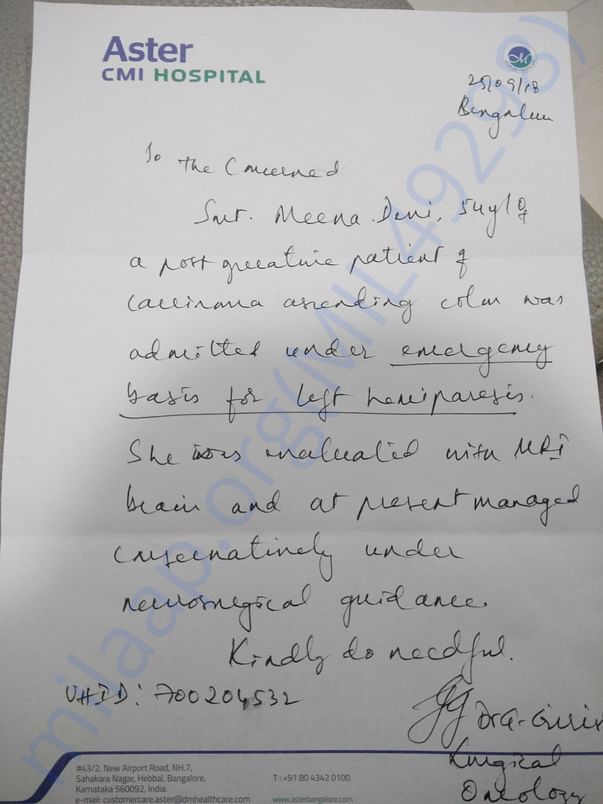 Aster
CMI HOSPITAL
25/09/18
Bengaluru
To The Concerned
Smt. Meena Devi, 54y/o F
a post operative patient of
Carcinoma ascending colon was
admitted under emergency
basis for left hemiparesis.
She was evaluated with MRI
brain and at present managed
conservatively under
neurosurgical guidance.
Kindly do needful.
UHID: 700204532
Dr. G. Girish
Surgical
Oncology
#43/2, New Airport Road, NH.7,
Sahakara Nagar, Hebbal, Bangalore,
Karnataka 560092, India.
T : +91 80 4342 0100
e-mail: customercare.aster@dmhealthcare.com
www.asterbangalore.com
milaap.org(MIL49298)